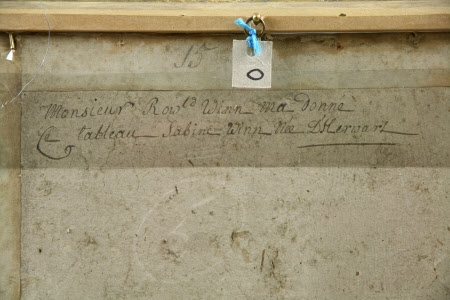 15
O
Monsieur Row^ld Winn ma Donné
Ce tableau Sabine Winn Née D'Hervart